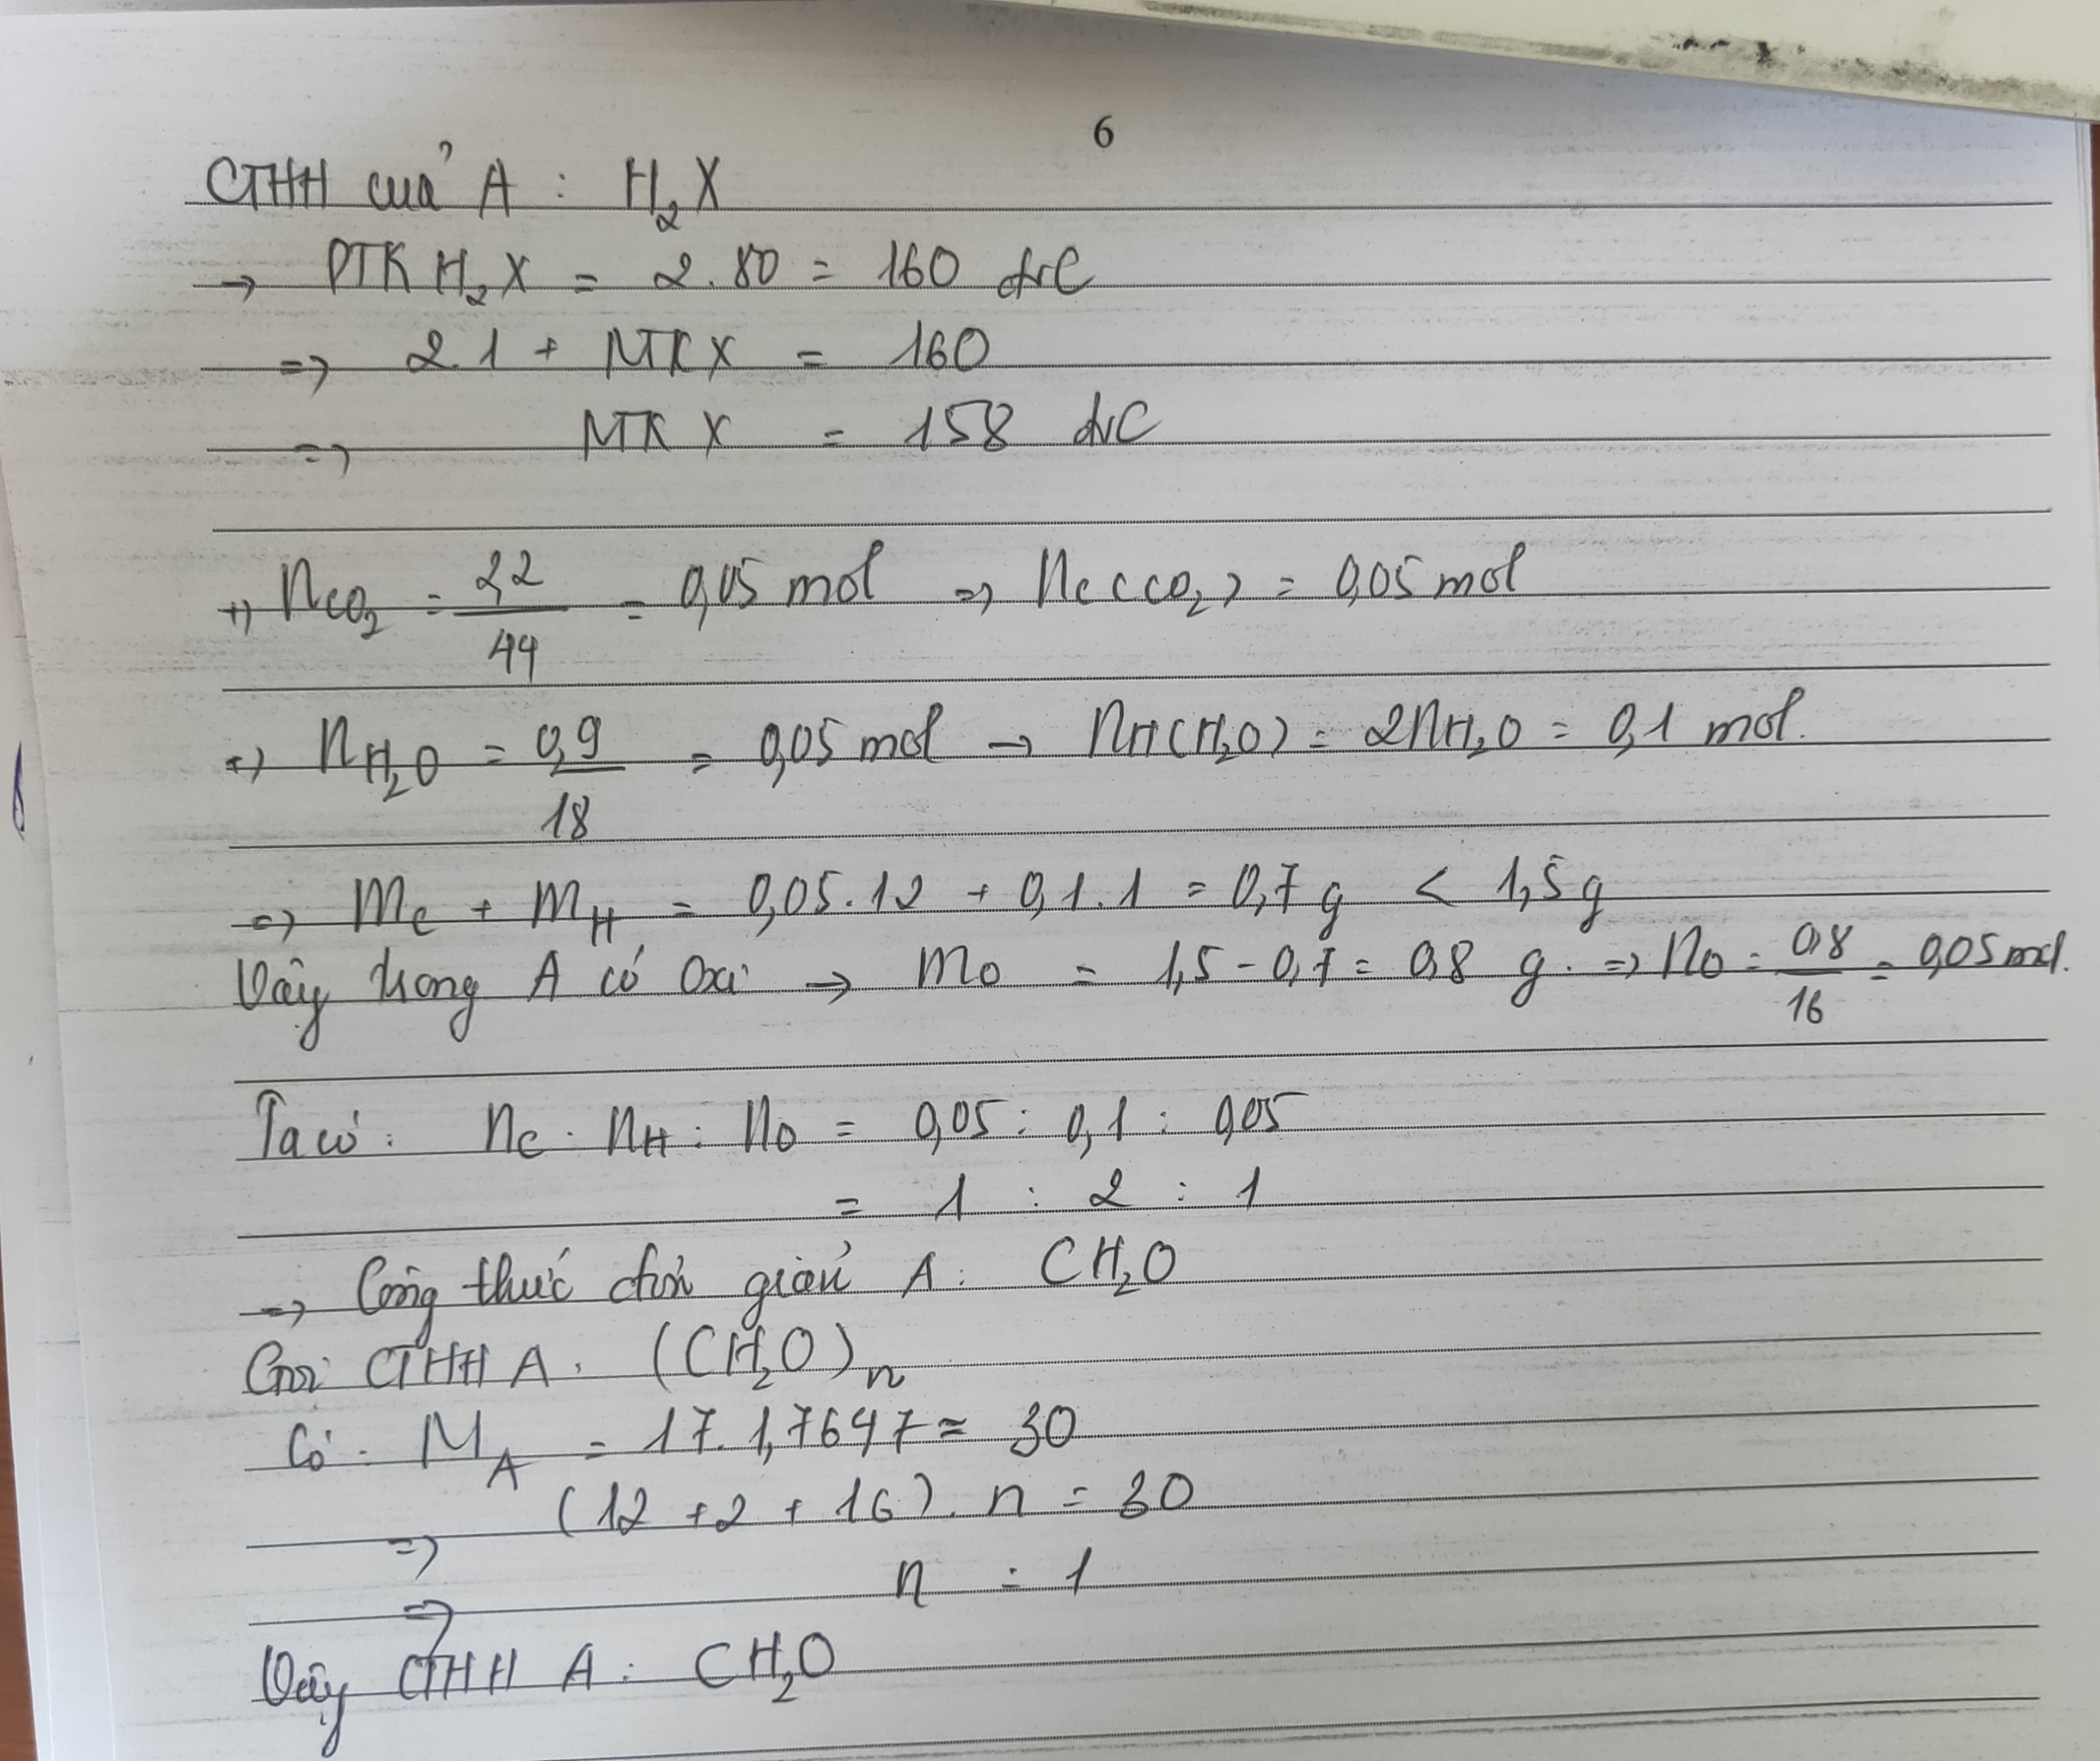 6
CTHH của A : H₂X
→ PTK H₂X = 2.80 = 160 đvC
=> 2.1 + NTK X = 160
=> NTK X = 158 đvC
+) nCO₂ = 2,2/44 = 0,05 mol => nC(CO₂) = 0,05 mol
+) nH₂O = 0,9/18 = 0,05 mol → nH(H₂O) = 2nH₂O = 0,1 mol.
=> mC + mH = 0,05.12 + 0,1.1 = 0,7 g < 1,5 g
Vậy trong A có Oxi → mO = 1,5 - 0,7 = 0,8 g. => nO = 0,8/16 = 0,05 mol.
Ta có: nC : nH : nO = 0,05 : 0,1 : 0,05
= 1 : 2 : 1
→ Công thức đơn giản A: CH₂O
Gọi CTHH A: (CH₂O)n
Có: MA = 17.1,7647 ≈ 30
=> (12 + 2 + 16). n = 30
=> n = 1
Vậy CTHH A: CH₂O